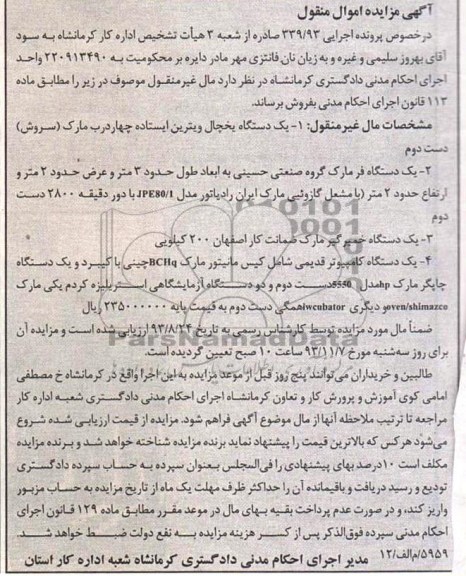 آگهی مزایده اموال منقول
درخصوص پرونده اجرایی ۳۳۹/۹۳ صادره از شعبه ۳ هیأت تشخیص اداره کار کرمانشاه به سود
آقای بهروز سلیمی و غیره و به زیان نان فانتزی مهر مادر دایره بر محکومیت به ۲۲۰۹۱۳۴۹۰ واحد
اجرای احکام مدنی دادگستری کرمانشاه در نظر دارد مال غیرمنقول موصوف در زیر را مطابق ماده
۱۱۳ قانون اجرای احکام مدنی بفروش برساند.
مشخصات مال غیرمنقول: ۱- یک دستگاه یخچال ویترین ایستاده چهاردرب مارک (سروش)
دست دوم
۲- یک دستگاه فر مارک گروه صنعتی حسینی به ابعاد طول حدود ۳ متر و عرض حدود ۲ متر و
ارتفاع حدود ۲ متر (با مشعل گازوئیی مارک ایران رادیاتور مدل JPE80/1 با دور دقیقه ۲۸۰۰ دست
دوم
۳- یک دستگاه خمیرگیر مارک ضمانت کار اصفهان ۲۰۰ کیلویی
۴- یک دستگاه کامپیوتر قدیمی شامل کیس مانیتور مارک BCHq چینی با کیبرد و یک دستگاه
چاپگر مارک hp مدل 5550 دست دوم و دو دستگاه آزمایشگاهی استریلیزه کردم یکی مارک
oven/shimazco و دیگری iwcubator همگی دست دوم به قیمت پایه ۲۳۵۰۰۰۰۰۰ ریال
ضمناً مال مورد مزایده توسط کارشناس رسمی به تاریخ ۹۳/۸/۲۴ ارزیابی شده است و مزایده آن
برای روز سه‌شنبه مورخ ۹۳/۱۱/۷ ساعت ۱۰ صبح تعیین گردیده است.
طالبین و خریداران می‌توانند پنج روز قبل از موعد مزایده به این اجرا واقع در کرمانشاه خ مصطفی
امامی کوی آموزش و پرورش کار و تعاون کرمانشاه اجرای احکام مدنی دادگستری شعبه اداره کار
مراجعه تا ترتیب ملاحظه آنها از مال موضوع آگهی فراهم شود. مزایده از قیمت ارزیابی شده شروع
می‌شود هر کس که بالاترین قیمت را پیشنهاد نماید برنده مزایده شناخته خواهد شد و برنده مزایده
مکلف است ۱۰درصد بهای پیشنهادی را فی‌المجلس بعنوان سپرده به حساب سپرده دادگستری
تودیع و رسید دریافت و باقیمانده آن را حداکثر ظرف مهلت یک ماه از تاریخ مزایده به حساب مزبور
واریز کند، و در صورت عدم پرداخت بقیه بهای مال در موعد مقرر مطابق ماده ۱۲۹ قانون اجرای
احکام مدنی سپرده فوق‌الذکر پس از کسر هزینه مزایده به نفع دولت ضبط خواهد شد.
۵۹۵۹/م‌الف/۱۲ مدیر اجرای احکام مدنی دادگستری کرمانشاه شعبه اداره کار استان
ParsNamadData